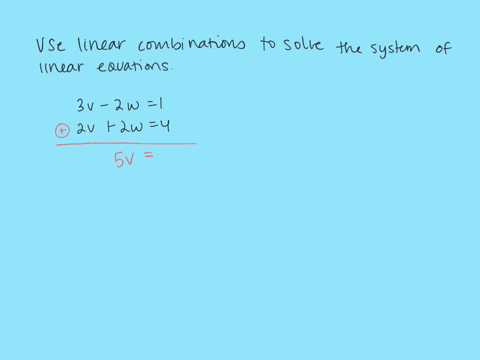 Use linear combinations to solve the system of
linear equations.
3v - 2w = 1
⊕ 2v + 2w = 4
5v =